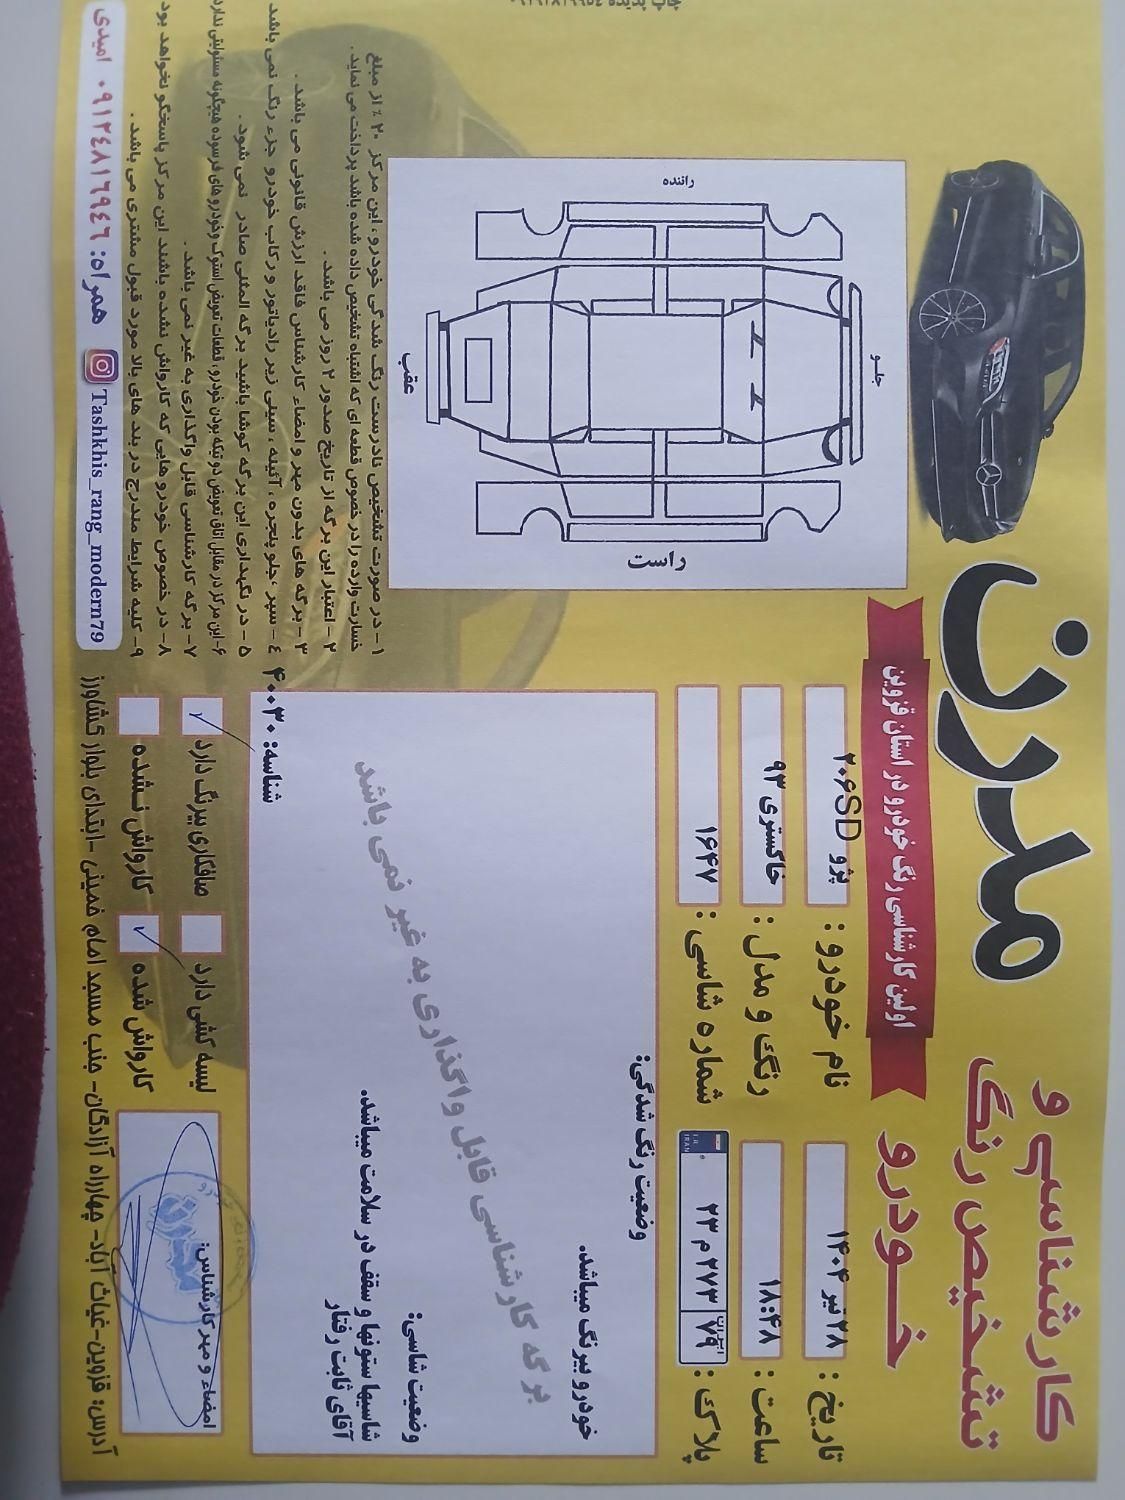 چاپ پدیده
کارشناسی و
تشخیص رنگ
خودرو
مدرن
اولین کارشناسی رنگ خودرو در استان قزوین
تاریخ : ۲۸ تیر ۱۴۰۴
نام خودرو : پژو ۲۰۶SD
ساعت : ۱۸:۴۸
رنگ و مدل : خاکستری ۹۳
پلاک : ۲۳ م ۲۷۳ ایران ۷۹
I.R. IRAN
شماره شاسی : ۱۶۴۷
وضعیت رنگ شدگی:
خودرو بیرنگ میباشد.
وضعیت شاسی:
شاسیها ستونها و سقف در سلامت میباشد.
آقای ثابت رفتار
برگه کارشناسی قابل واگذاری به غیر نمی باشد
شناسه: ۴۰۰۳۰
راننده
جلو
عقب
راست
۱- در صورت تشخیص نادرست رنگ شدگی خودرو ، این مرکز ۲۰ ٪ از مبلغ
خسارت وارده را در خصوص قطعه ای که اشتباه تشخیص داده شده باشد پرداخت می نماید .
۲ - اعتبار این برگه از تاریخ صدور ۲ روز می باشد .
۳ - برگه های بدون مهر و امضاء کارشناس فاقد ارزش قانونی می باشد .
۴ - سپر ، جلو پنجره ، آئینه ، سینی زیر رادیاتور و رکاب خودرو جزء رنگ نمی باشد
۵ - در نگهداری این برگه کوشا باشید برگه المثنی صادر نمی شود .
۶- این مرکز در مقابل اتاق تعویض ، دو تیکه بودن خودرو، قطعات تعویض استوک و خودرو های فرسوده هیچگونه مسئولیتی ندارد
۷- برگه کارشناسی قابل واگذاری به غیر نمی باشد .
۸- در خصوص خودرو هایی که کارواش نشده باشند این مرکز پاسخگو نخواهد بود
۹- کلیه شرایط مندرج در بند های بالا مورد قبول مشتری می باشد .
لیسه کشی دارد
صافکاری بیرنگ دارد
کارواش شده
کارواش نشده
امضاء و مهر کارشناس:
آدرس: قزوین- غیاث آباد- چهارراه آزادگان- جنب مسجد امام خمینی -ابتدای بلوار کشاورز
Tashkhis_rang_modern79
همراه: ۰۹۱۲۴۸۱۶۹۴۶ امیدی